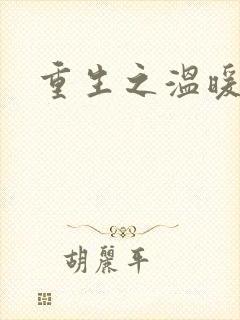 重生之温暖
胡丽平